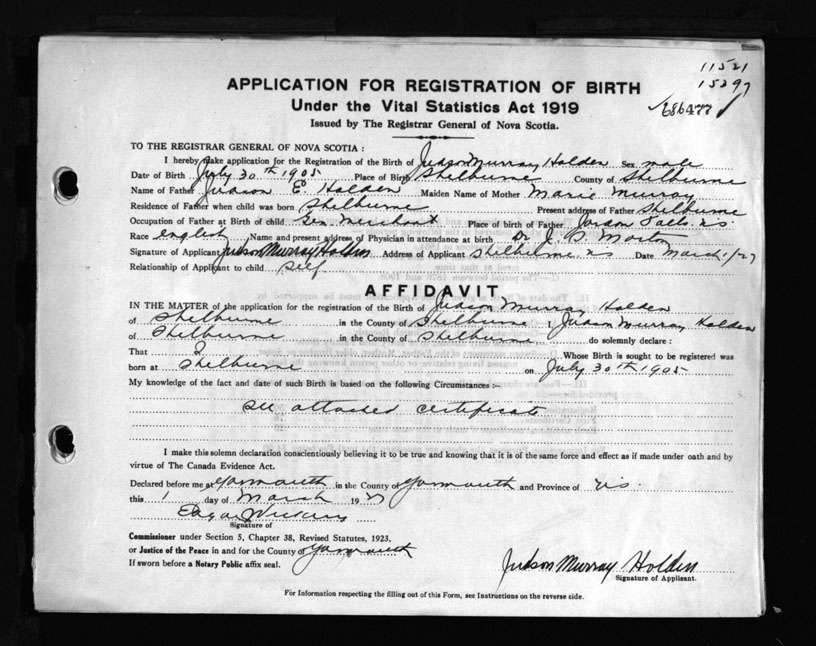 11521
15297
686477
APPLICATION FOR REGISTRATION OF BIRTH
Under the Vital Statistics Act 1919
Issued by The Registrar General of Nova Scotia.
TO THE REGISTRAR GENERAL OF NOVA SCOTIA :
I hereby make application for the Registration of the Birth of Judson Murray Holden Sex male
Date of Birth July 30th 1905 Place of Birth Shelburne County of Shelburne
Name of Father Judson E. Holden Maiden Name of Mother Marie Murray
Residence of Father when child was born Shelburne Present address of Father Shelburne
Occupation of Father at Birth of child Gen. Merchant Place of birth of Father Jordan Falls N.S.
Race English Name and present address of Physician in attendance at birth Dr J. B. Morton
Signature of Applicant Judson Murray Holden Address of Applicant Shelburne NS Date March 1/27
Relationship of Applicant to child Self
AFFIDAVIT
IN THE MATTER of the application for the registration of the Birth of Judson Murray Holden
of Shelburne in the County of Shelburne I, Judson Murray Holden
of Shelburne in the County of Shelburne do solemnly declare :
That I Whose Birth is sought to be registered was
born at Shelburne on July 30th 1905
My knowledge of the fact and date of such Birth is based on the following Circumstances :-
See attached certificate
I make this solemn declaration conscientiously believing it to be true and knowing that it is of the same force and effect as if made under oath and by
virtue of The Canada Evidence Act.
Declared before me at Yarmouth in the County of Yarmouth and Province of N.S.
this 1 day of March 1927
Edgar
Signature of
Commissioner under Section 5, Chapter 38, Revised Statutes, 1923,
or Justice of the Peace in and for the County of Yarmouth
If sworn before a Notary Public affix seal.
Judson Murray Holden
Signature of Applicant.
For Information respecting the filling out of this Form, see Instructions on the reverse side.